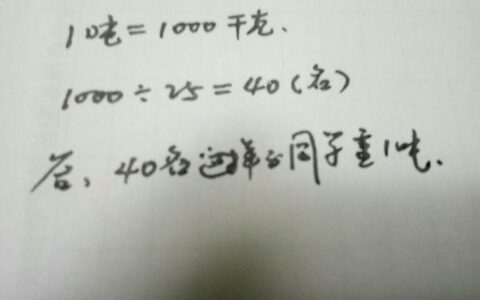 1吨=1000千克.
1000÷25=40(名)
答:40名这样的同学重1吨.